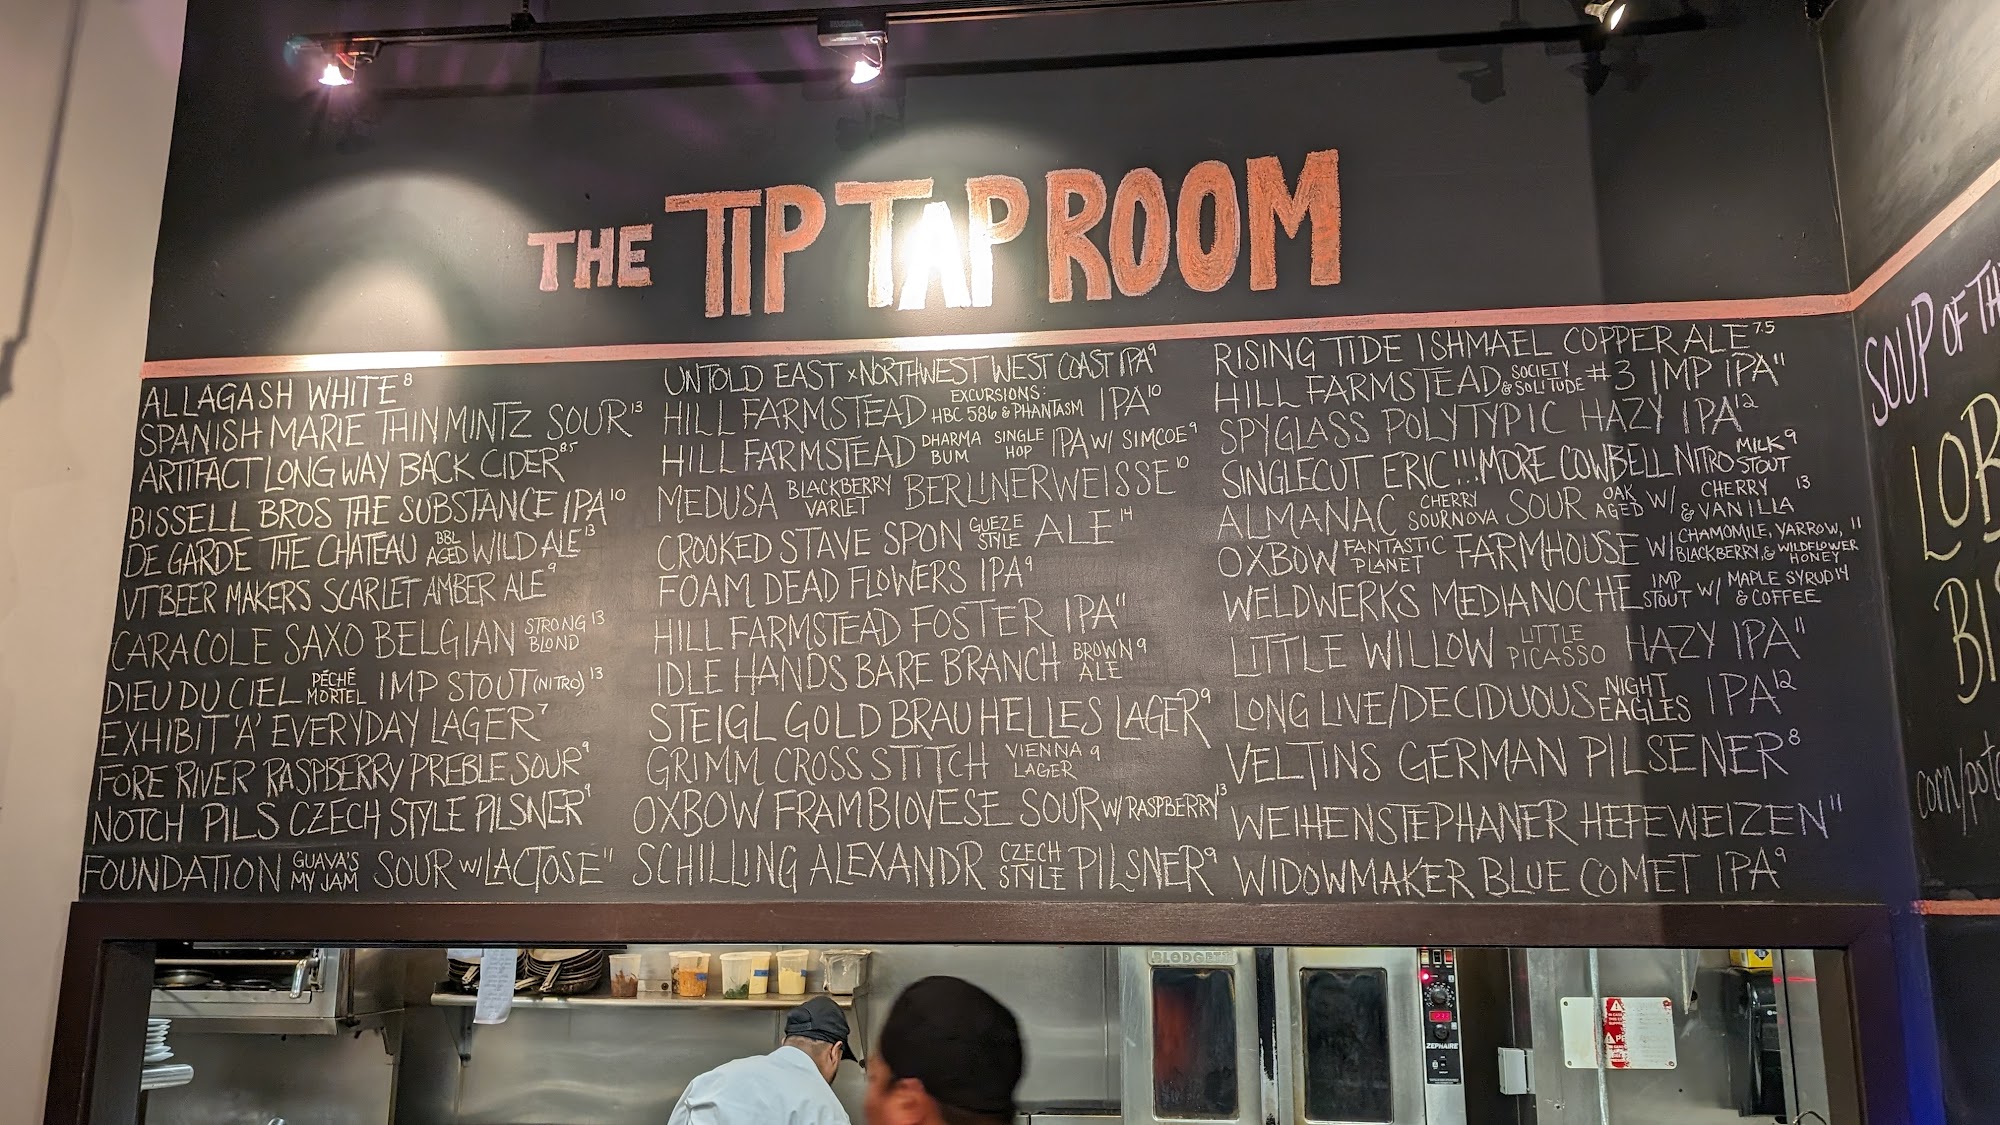 THE TIP TAP ROOM
ALLAGASH WHITE 8
SPANISH MARIE THIN MINTZ SOUR 13
ARTIFACT LONG WAY BACK CIDER 8.5
BISSELL BROS THE SUBSTANCE IPA 10
DE GARDE THE CHATEAU BBL AGED WILD ALE 13
VT BEER MAKERS SCARLET AMBER ALE 9
CARACOLE SAXO BELGIAN STRONG BLOND 13
DIEU DU CIEL PÉCHÉ MORTEL IMP STOUT (NITRO) 13
EXHIBIT 'A' EVERYDAY LAGER 7
FORE RIVER RASPBERRY PREBLE SOUR 9
NOTCH PILS CZECH STYLE PILSNER 9
FOUNDATION GUAVA'S MY JAM SOUR W/ LACTOSE 11
UNTOLD EAST x NORTHWEST WEST COAST IPA 9
HILL FARMSTEAD EXCURSIONS: HBC 586 & PHANTASM IPA 10
HILL FARMSTEAD DHARMA BUM SINGLE HOP IPA W/ SIMCOE 9
MEDUSA BLACKBERRY VARLET BERLINERWEISSE 10
CROOKED STAVE SPON GUEZE STYLE ALE 14
FOAM DEAD FLOWERS IPA 9
HILL FARMSTEAD FOSTER IPA 11
IDLE HANDS BARE BRANCH BROWN ALE 9
STEIGL GOLD BRAU HELLES LAGER 9
GRIMM CROSS STITCH VIENNA LAGER 9
OXBOW FRAMBIOVESE SOUR W/ RASPBERRY 13
SCHILLING ALEXANDR CZECH STYLE PILSNER 9
RISING TIDE ISHMAEL COPPER ALE 7.5
HILL FARMSTEAD SOCIETY & SOLITUDE #3 IMP IPA 11
SPYGLASS POLYTYPIC HAZY IPA 12
SINGLECUT ERIC!!! MORE COWBELL NITRO MILK STOUT 9
ALMANAC CHERRY SOURNOVA SOUR OAK AGED W/ CHERRY & VANILLA 13
OXBOW FANTASTIC PLANET FARMHOUSE W/ CHAMOMILE, YARROW, BLACKBERRY, & WILDFLOWER HONEY 11
WELDWERKS MEDIANOCHE IMP STOUT W/ MAPLE SYRUP & COFFEE 14
LITTLE WILLOW LITTLE PICASSO HAZY IPA 11
LONG LIVE/DECIDUOUS NIGHT EAGLES IPA 12
VELTINS GERMAN PILSENER 8
WEIHENSTEPHANER HEFEWEIZEN 11
WIDOWMAKER BLUE COMET IPA 9
SOUP OF TH
LOB
BIS
corn/pot
BLODGETT
ZEPHAIRE